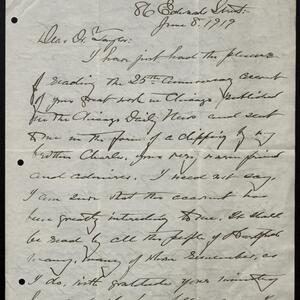 86 Edwards Street.
June 8. 1919
Dear Dr Taylor:
I have just had the pleasure
of reading the 25th Anniversary account
of your great work in Chicago published
in the Chicago Daily News and sent
to me in the form of a clipping by my
brother Charlie, your very warm friend
and admirer. I need not say,
I am sure that the account has
been greatly interesting to me. It shall
be read by all the people of Hartford
many, many of whom remember, as
I do, with gratitude your ministry